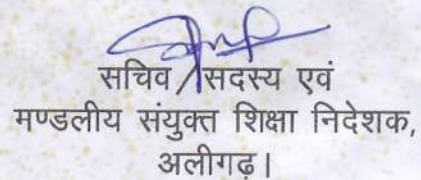 सचिव / सदस्य एवं
मण्डलीय संयुक्त शिक्षा निदेशक,
अलीगढ़।